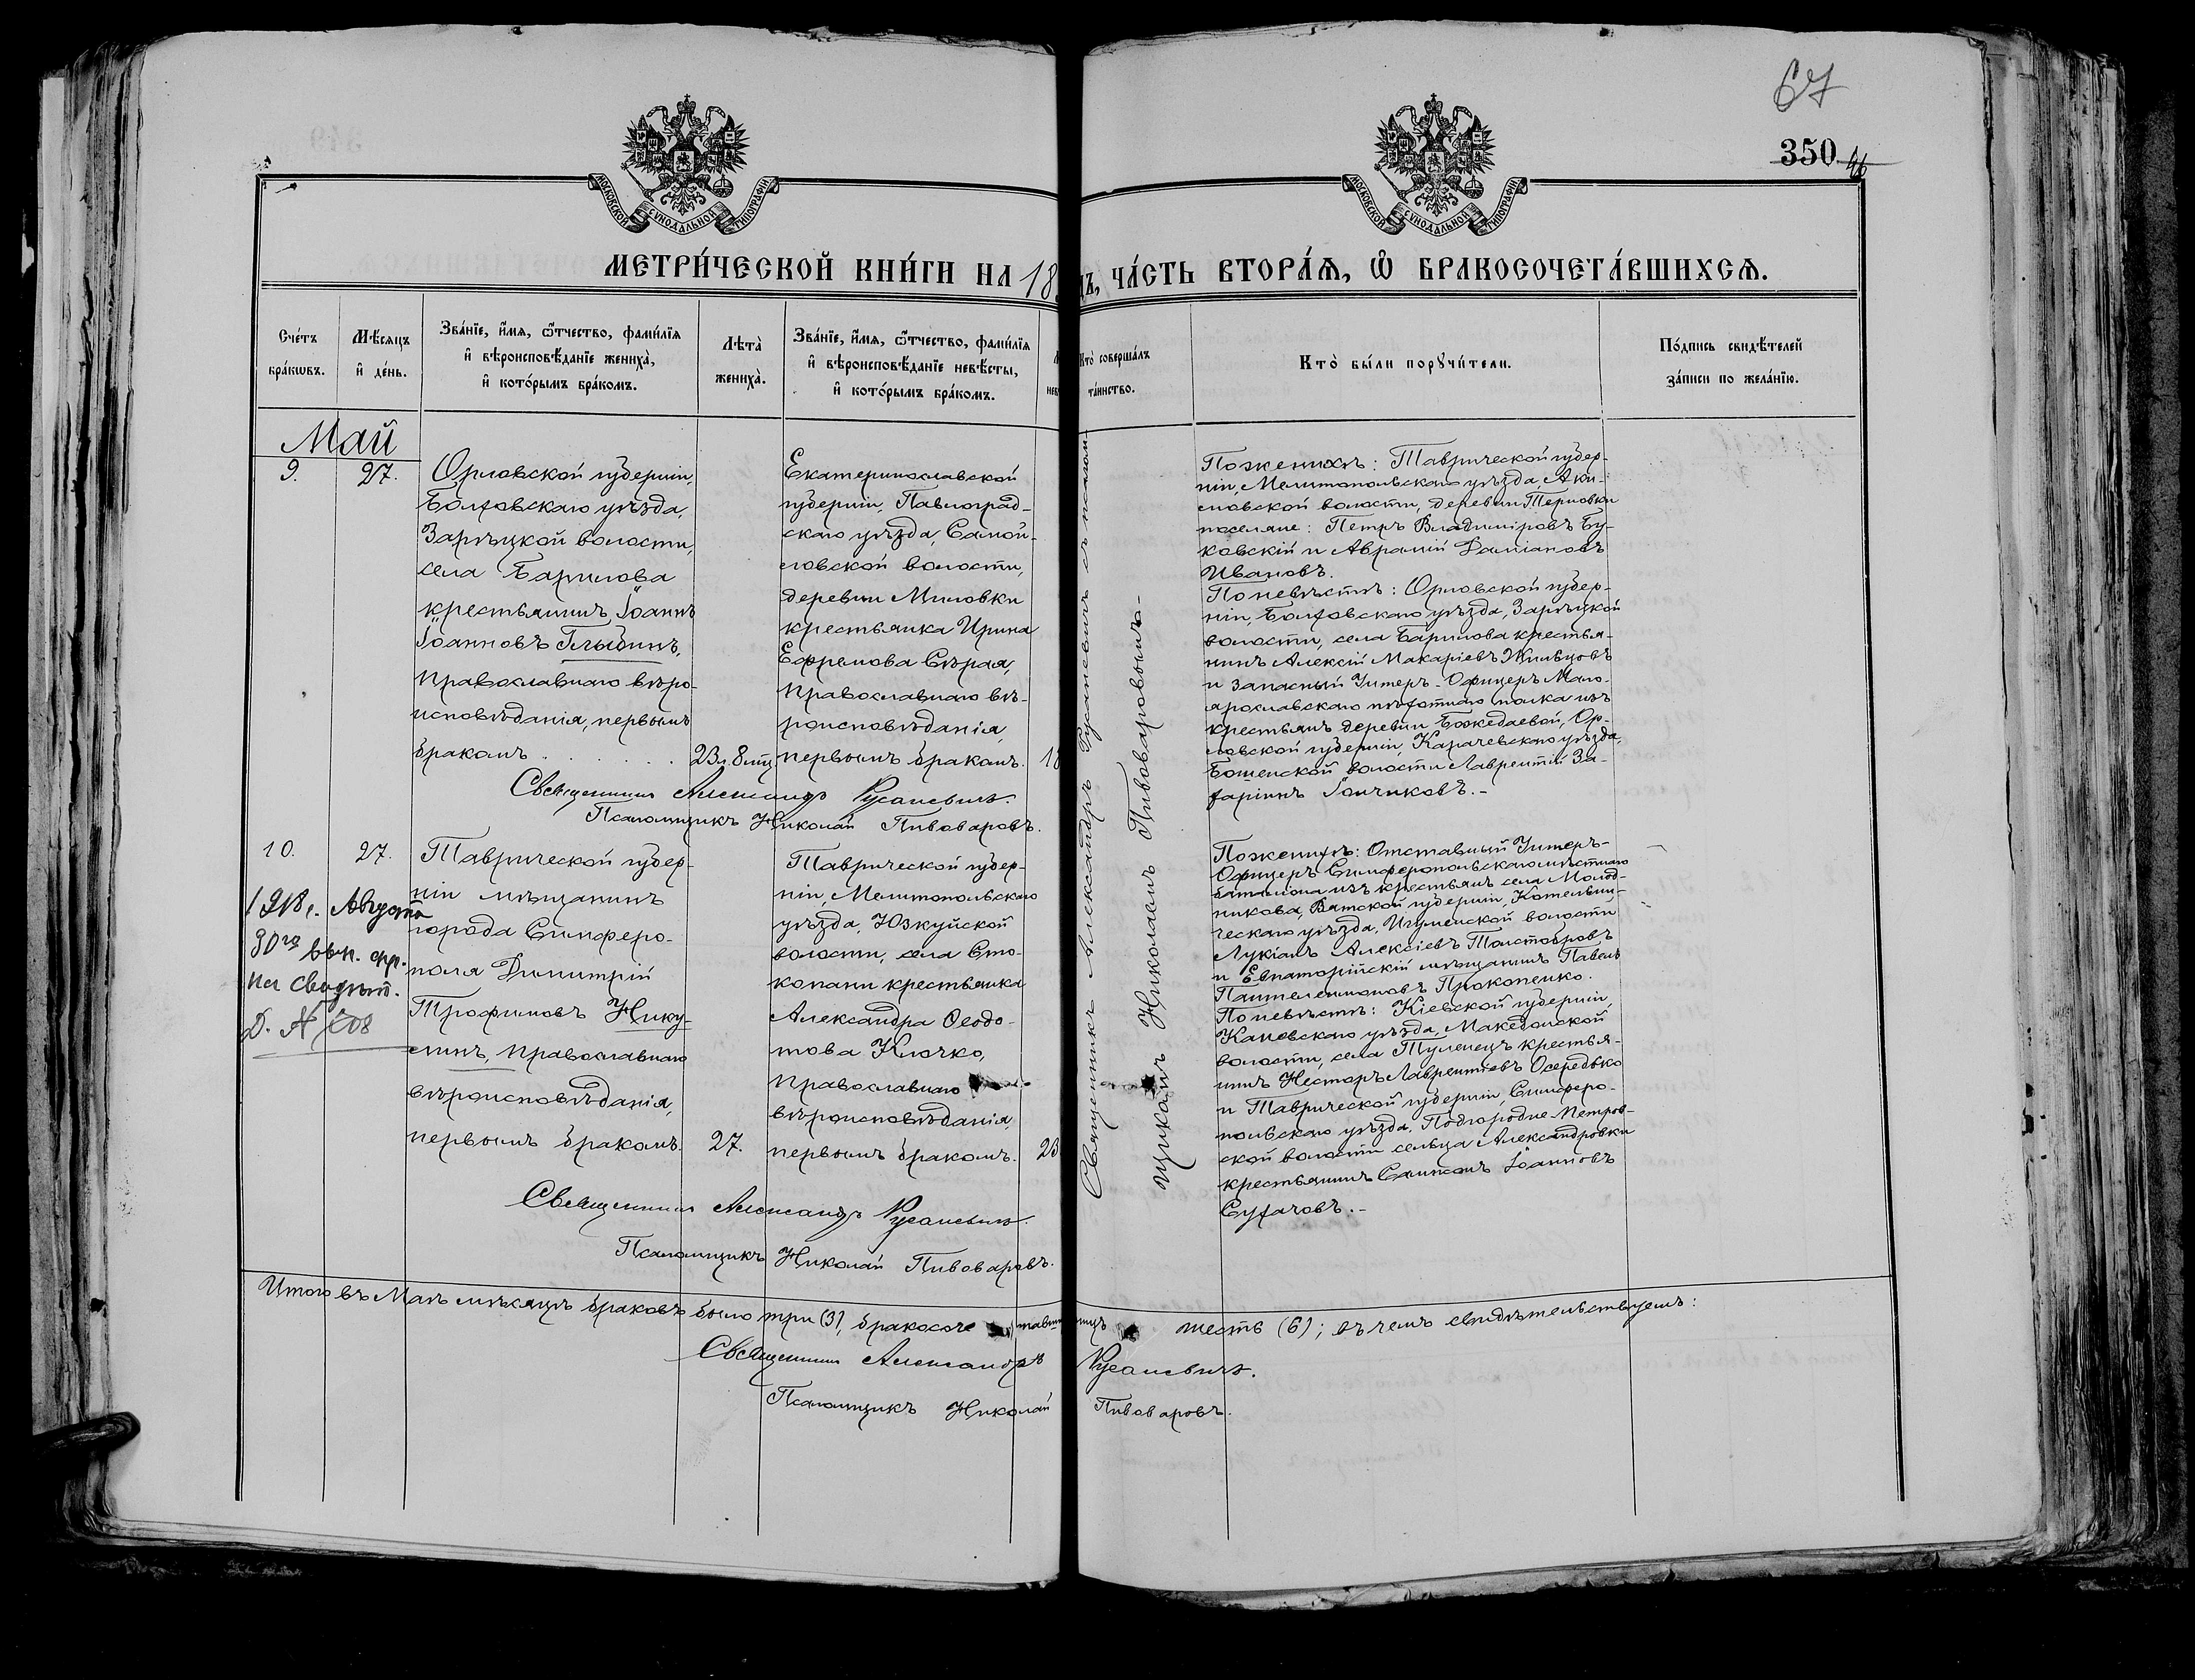 67
350
46
МОСКОВСКОЙ СѴНОДАЛЬНОЙ ТИПОГРАФІИ
МОСКОВСКОЙ СѴНОДАЛЬНОЙ ТИПОГРАФІИ
МЕТРИ́ЧЕСКОЙ КНИ́ГИ НА 18
ЧА́СТЬ ВТОРА́Ѧ, Ѽ БРАКОСОЧЕТА́ВШИХСѦ.
Сче́тъ
бра́кѡвъ.
Мѣ́сѧцъ
и҆ де́нь.
Зва́нїе, и҆́мѧ, ѻ҆́тчество, фами́лїѧ
и҆ вѣроисповѣ́данїе жениха̀,
и҆ кото́рымъ бра́комъ.
Лѣта̀
жениха̀.
Зва́нїе, и҆́мѧ, ѻ҆́тчество, фами́лїѧ
и҆ вѣроисповѣ́данїе невѣ́сты,
и҆ кото́рымъ бра́комъ.
Кто̀ соверша́лъ
та́инство.
Кто̀ бы́ли порꙋчи́тели.
По́дпись свидѣ́телей
за́писи по жела́нїю.
Май
9.
27.
Орловской губерніи,
Болховскаго уѣзда,
Зарѣцкой волости,
села Барилова
крестьянинъ Іоаннъ
Іоанновъ Глыбинъ,
православнаго вѣро-
исповѣданія, первымъ
бракомъ
23 л. 8 мц
Екатеринославской
губерніи, Павлоград-
скаго уѣзда, Самой-
ловской волости,
деревни Миловки
крестьянка Ирина
Ефремова Сѣрая,
православнаго вѣ-
роисповѣданія,
первымъ бракомъ.
18
Священникъ Александръ Русаневичъ.
Псаломщикъ Николай Пивоваровъ.
Священникъ Александръ Русаневичъ съ псалом-
щикомъ Николаемъ Пивоваровымъ.
По женихѣ: Таврической губер-
ніи, Мелитопольскаго уѣзда, Аки-
мовской волости, деревни Терновки
поселяне: Петръ Владиміровъ Бу-
ковскій и Аврамій Даміановъ
Ивановъ.
По невѣстѣ: Орловской губер-
ніи, Болховскаго уѣзда, Зарѣцкой
волости, села Барилова крестья-
нинъ Алексій Макаріевъ Жильцовъ
и запасный Унтеръ-Офицеръ Мало-
ярославскаго пѣхотнаго полка изъ
крестьянъ деревни Божедаевой, Ор-
ловской губерніи, Карачевскаго уѣзда,
волости Лаврентій За-
харіинъ Гончиковъ.-
10.
27.
1918 г. Августа
30го вып. арх.
на свидѣт.
Д. № 608
Таврической губер-
ніи мѣщанинъ
города Симферо-
поля Димитрій
Трофимовъ Нику-
линъ, православнаго
вѣроисповѣданія,
первымъ бракомъ.
27.
Таврической губер-
ніи, Мелитопольскаго
уѣзда, Юзкуйской
волости, села Сто-
копани крестьянка
Александра Ѳеодо-
това Клочко,
православнаго
вѣроисповѣданія,
первымъ бракомъ.
23
Священникъ Александръ Русаневичъ.
Псаломщикъ Николай Пивоваровъ.
По женихѣ: Отставный Унтеръ-
Офицеръ Симферопольскаго мѣстнаго
баталіона изъ крестьянъ села Молод-
никова, Вятской губерніи, Котельни-
ческаго уѣзда, Игуменской волости
Лукіанъ Алексіевъ Толстобровъ
и Евпаторійскій мѣщанинъ Павелъ
Пантелеимоновъ Прокопенко.
По невѣстѣ: Кіевской губерніи,
Каневскаго уѣзда, Македонской
волости, села Тулинецъ крестья-
нинъ Несторъ Лаврентіевъ Осередько
и Таврической губерніи, Симферо-
польскаго уѣзда, Подгородне-Петров-
ской волости сельца Александровки
крестьянинъ Сампсонъ Іоанновъ
Сухачовъ.-
Итого въ Маѣ мѣсяцѣ браковъ было три (3), бракосочетавшихся лицъ шесть (6); въ чемъ свидѣтельствуемъ:
Священникъ Александръ Русаневичъ.
Псаломщикъ Николай Пивоваровъ.